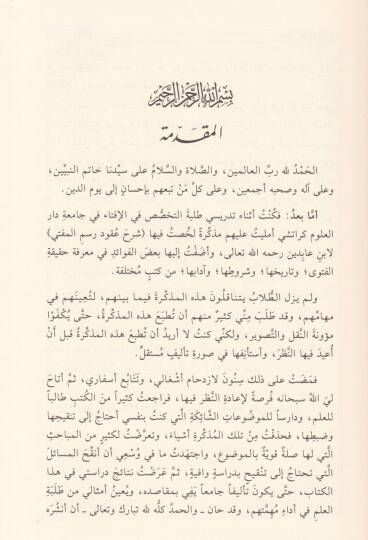 بسم الله الرحمن الرحيم
المقدمة
الحَمْدُ لله ربِّ العالمين، والصَّلاة والسَّلامُ على سيِّدنا خاتم النبيِّين،
وعلى آله وصحبه أجمعين، وعلى كلِّ مَنْ تبعهم بإحسانٍ إلى يوم الدين.
أمَّا بعدُ: فكُنْتُ أثناء تدريسي طلبةَ التخصُّص في الإفتاء في جامعةِ دار
العلوم كراتشي أمليتُ عليهم مذكِّرةً لخَّصتُ فيها (شرحَ عُقود رسم المفتي)
لابنِ عابدين رحمه الله تعالى، وأضَفْتُ إليها بعضَ الفوائدِ في معرفة حقيقةِ
الفتوى؛ وتاريخها؛ وشروطِها؛ وآدابها؛ من كتبٍ مُختلفة.
ولم يزل الطُّلابُ يتناقلُونَ هذه المذكرةَ فيما بينهم، لتُعِينَهم في
مهامِّهم، وقد طَلَبَ منِّي كثيرٌ منهم أن تُطبَعَ هذه المذكرةُ، حتَّى يُكفَوْا
مؤونةَ النَّقل والتَّصوير، ولكنِّي كنتُ لا أريدُ أن تُطبعَ هذه المذكِّرةُ قبل أنْ
أُعيدَ فيها النَّظرَ، وأستأنِفها في صورةِ تأليفٍ مُستقلٍّ.
فمَضَتْ على ذلك سِنُونَ لازدحام أشغالي، وتَتَابُع أسفاري، ثمَّ أتاحَ
لِيَ اللهُ سبحانه فُرصةً لإعادةِ النَّظر فيها، فراجعتُ كثيراً منَ الكُتبِ طالباً
للعلم، ودارساً للموضُوعاتِ الشَّائِكةِ الَّتي كنتُ بنفسي أحتاجُ إلى تنقيحِها
وضبطِها، فحذَفْتُ مِنْ تلك المُذكِّرةِ أشياءَ، وتعرَّضْتُ لكثيرٍ من المباحثِ
الَّتي لها صلةٌ قويَّةٌ بالموضوع، واجتهَدتُ ما في وُسْعِي أن أنقِّحَ المسائلَ
الَّتي تحتاجُ إلى تَنْقِيحٍ بدراسةٍ وافيةٍ، ثمَّ عَرَضْتُ نتائجَ دراستي في هذا
الكتاب، حتَّى يكونَ تأليفاً جامعاً يَفِي بمقاصده، ويُعينُ أمثالي من طَلَبَةِ
العلمِ في أداءِ مُهمَّتِهم، وقد حان ـ والحمدُ كلُّه لله تبارك وتعالى ـ أن أنشُرَه